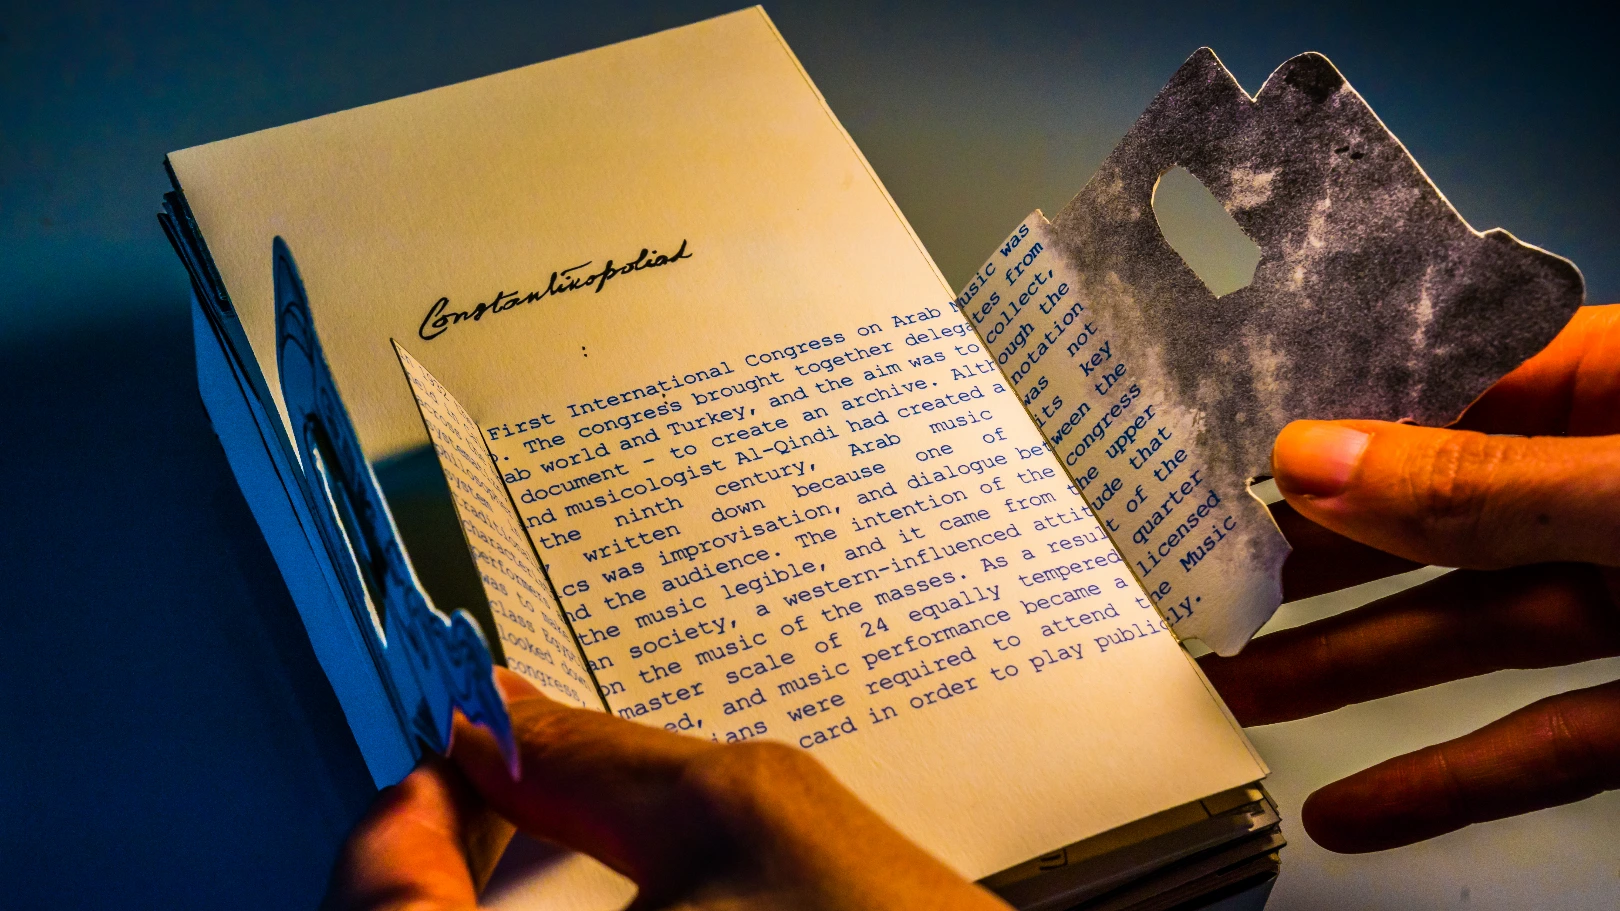 Constantinopoliad
First International Congress on Arab Music was
The congress brought together delegates from
ab world and Turkey, and the aim was to collect,
document - to create an archive. Although the
nd musicologist Al-Qindi had created a notation
the ninth century, Arab music was not
written down because one of its key
cs was improvisation, and dialogue between the
nd the audience. The intention of the congress
the music legible, and it came from the upper
an society, a western-influenced attitude that
on the music of the masses. As a result of the
master scale of 24 equally tempered quarter
ed, and music performance became a licensed
ians were required to attend the Music
card in order to play publicly.
performers
was to make
class Egypt
looked down
congress,